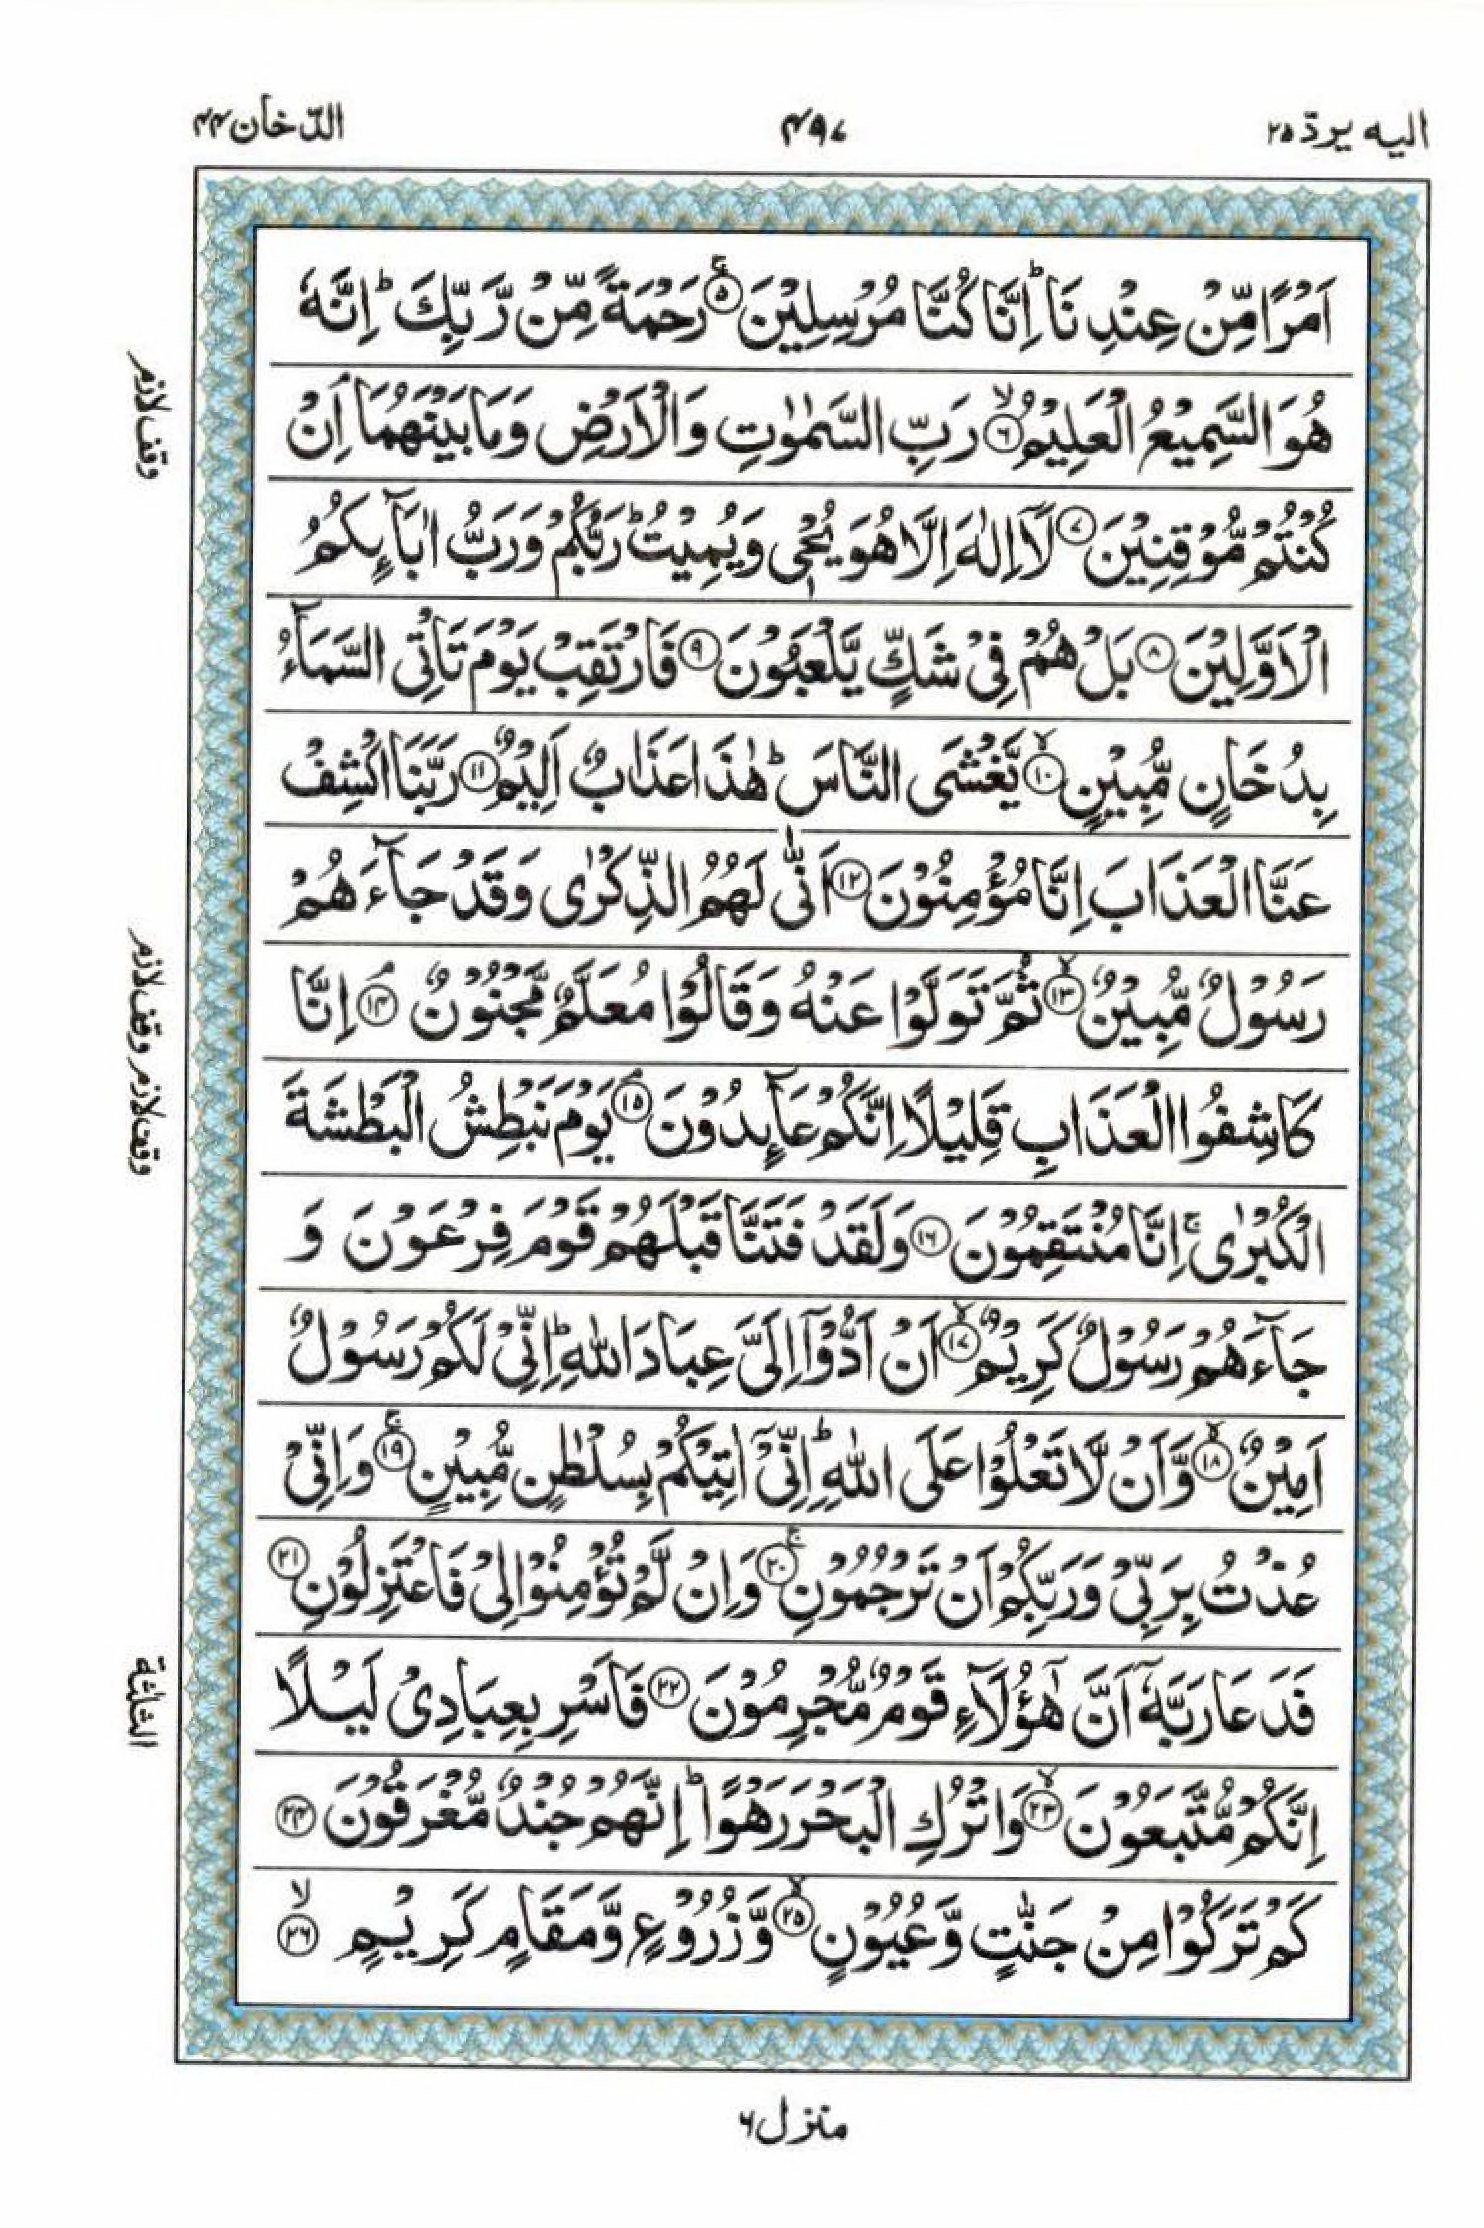 الیه یردّ ۲۵
۴۹۷
الدّخان ۴۴
اَمۡرًا مِّنۡ عِنۡدِنَا ؕ اِنَّا كُنَّا مُرۡسِلِيۡنَ ۚ‏ ﴿۵﴾ رَحۡمَةً مِّنۡ رَّبِّكَ ؕ اِنَّهٗ
هُوَ السَّمِيۡعُ الۡعَلِيۡمُ ۙ‏ ﴿۶﴾ رَبِّ السَّمٰوٰتِ وَالۡاَرۡضِ وَمَا بَيۡنَهُمَا ۘ اِنۡ
كُنۡتُمۡ مُّوۡقِنِيۡنَ‏ ﴿۷﴾ لَاۤ اِلٰهَ اِلَّا هُوَ يُحۡىٖ وَيُمِيۡتُ ؕ رَبُّكُمۡ وَرَبُّ اٰبَآٮِٕكُمُ
الۡاَوَّلِيۡنَ‏ ﴿۸﴾ بَلۡ هُمۡ فِىۡ شَكٍّ يَّلۡعَبُوۡنَ‏ ﴿۹﴾ فَارۡتَقِبۡ يَوۡمَ تَاۡتِى السَّمَآءُ
بِدُخَانٍ مُّبِيۡنٍ ۙ‏ ﴿۱۰﴾ يَّغۡشَى النَّاسَ ؕ هٰذَا عَذَابٌ اَلِيۡمٌ‏ ﴿۱۱﴾ رَبَّنَا اكۡشِفۡ
عَنَّا الۡعَذَابَ اِنَّا مُؤۡمِنُوۡنَ‏ ﴿۱۲﴾ اَنّٰى لَهُمُ الذِّكۡرٰى وَقَدۡ جَآءَهُمۡ
رَسُوۡلٌ مُّبِيۡنٌ ۙ‏ ﴿۱۳﴾ ثُمَّ تَوَلَّوۡا عَنۡهُ وَقَالُوۡا مُعَلَّمٌ مَّجۡنُوۡنٌ ۘ‏ ﴿۱۴﴾ اِنَّا
كَاشِفُوا الۡعَذَابِ قَلِيۡلًا اِنَّكُمۡ عَآٮِٕدُوۡنَ ۘ‏ ﴿۱۵﴾ يَوۡمَ نَبۡطِشُ الۡبَطۡشَةَ
الۡكُبۡرٰى ۚ اِنَّا مُنۡتَقِمُوۡنَ‏ ﴿۱۶﴾ وَلَقَدۡ فَتَنَّا قَبۡلَهُمۡ قَوۡمَ فِرۡعَوۡنَ وَ
جَآءَهُمۡ رَسُوۡلٌ كَرِيۡمٌ ۙ‏ ﴿۱۷﴾ اَنۡ اَدُّوۡۤا اِلَىَّ عِبَادَ اللّٰهِ ؕ اِنِّىۡ لَكُمۡ رَسُوۡلٌ
اَمِيۡنٌ ۙ‏ ﴿۱۸﴾ وَّاَنۡ لَّا تَعۡلُوۡا عَلَى اللّٰهِ ؕ اِنِّىۡۤ اٰتِيۡكُمۡ بِسُلۡطٰنٍ مُّبِيۡنٍ ۚ‏ ﴿۱۹﴾ وَاِنِّىۡ
عُذۡتُ بِرَبِّىۡ وَرَبِّكُمۡ اَنۡ تَرۡجُمُوۡنِ ۚ‏ ﴿۲۰﴾ وَاِنۡ لَّمۡ تُؤۡمِنُوۡا لِىۡ فَاعۡتَزِلُوۡنِ‏ ﴿۲۱﴾
فَدَعَا رَبَّهٗۤ اَنَّ هٰٓؤُلَاۤءِ قَوۡمٌ مُّجۡرِمُوۡنَ‏ ﴿۲۲﴾ فَاَسۡرِ بِعِبَادِىۡ لَيۡلًا
اِنَّكُمۡ مُّتَّبَعُوۡنَ ۙ‏ ﴿۲۳﴾ وَاتۡرُكِ الۡبَحۡرَ رَهۡوًا ؕ اِنَّهُمۡ جُنۡدٌ مُّغۡرَقُوۡنَ‏ ﴿۲۴﴾
كَمۡ تَرَكُوۡا مِنۡ جَنّٰتٍ وَّعُيُوۡنٍ ۙ‏ ﴿۲۵﴾ وَّزُرُوۡعٍ وَّمَقَامٍ كَرِيۡمٍ ۙ‏ ﴿۲۶﴾
وقف لازم
وقف لازم وقف لازم
الثلٰثة
منزل ۶